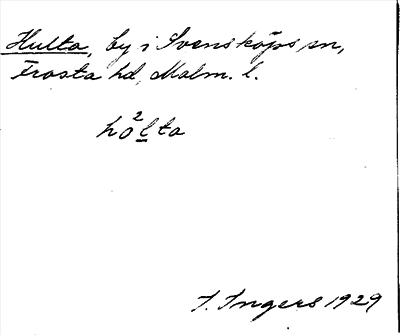 Hulta, by i Svensköps sn,
Frosta hd, Malm. l.
hò²lta
I. Ingers 1929